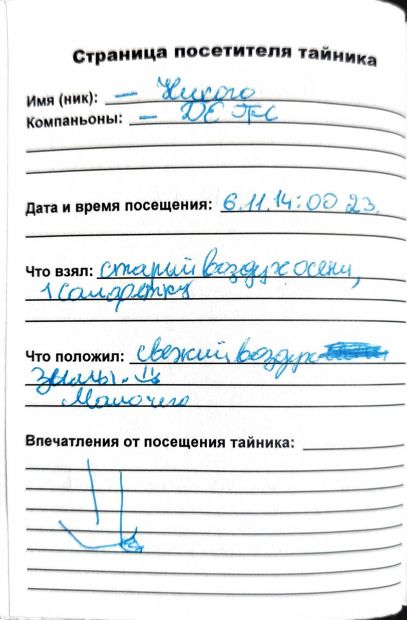 Страница посетителя тайника
Имя (ник): — Никого
Компаньоны: —
Дата и время посещения: 6.11.14:00 23.
Что взял: старый воздух осени,
1 салфетку
Что положил: свежий воздух
зимы.
Впечатления от посещения тайника: